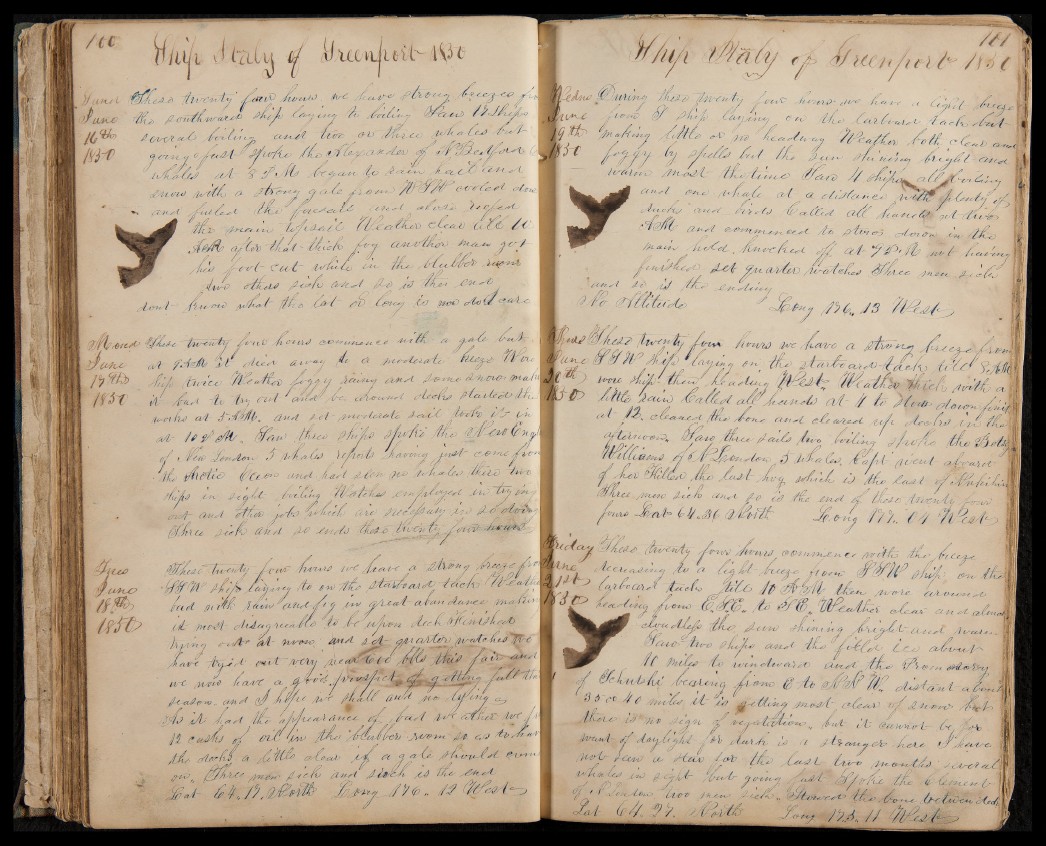 100
Ship Italy of Greenport 1850
Sund
June
16th
1850
These twenty four hours we have strong breezes from
the southward ship laying to boiling Saw 12 Ships
several boiling and two or three whales but
going fast spoke the Alexander of N Bedford
whales at 8 P.M. began to rain hail and
snow with a strong gale from WSW cooled down
and furled the foresail and close reefed
the main topsail Weather clear till 10
A.M. after that thick fog another man got
his foot cut while in the blubber room
two others sick and so is the end
dont know what the Lat or Long is nor dont care
Mond
June
17th
1850
These twenty four hours commence with a gale but
at it dies away to a moderate breeze Wore
ship twice Weather foggy rainy and some snow making
it bad to try out and be around decks started the
works at 5 A.M. and set moderate sail took it in
at 10 P.M. Saw three ships spoke the New Eng
of New London 5 whales reports having just come from
the Arctic Ocean and had seen no whales there two
ships in sight boiling Watches employed in trying
out and other jobs which are necessary in so doing
Three sick and so ends these twenty four hours
Tues
June
18th
1850
These twenty four hours we have a strong breeze from
SSW ship laying to on the starboard tack Weather
bad with rain and fog in great abundance making
it most disagreeable to be upon deck Finished
trying out at noon and set quarter watches
have tryed out very near bbls this fair and
we now have a good prospect of getting full this
season and I hope we shall and no
As it had the appearance of bad weather we
12 casks of oil in the blubber room so as to have
the decks a little clear if a gale should come
on. Three men sick and such is the end
Lat 64.17. North Long 176.. 12 West
101
Ship Italy of Greenport 1850
Wednes
June
19th
1850
During these twenty four hours we have a light breeze
from S ship laying on the larboard tack but
making little or no headway Weather both clear and
foggy by spells but the sun shining bright and
warm most the time Saw 4 ships all boiling
and one whale at a distance with plenty of
ducks and birds Called all hands at two
A.M. and commenced to stow down in the
main hold. Knocked off at 7 P.M. not having
finished set quarter watches Three men sick
and so is the ending
No Altitude Long 176.. 13 West
Thurs
June
20th
1850
These twenty four hours we have a strong breeze from
SSW ship laying on the starboard tack till 8 A.M.
wore ship then heading West. Weather thick with a
little rain Called all hands at 4 to stow down finish
at 12. cleaned the bone and cleared up decks in the
afternoon. Saw three sails two boiling spoke the Betsy
Williams of N London 5 whales. Capt went aboard
of her Killed the last hog which is the last of
Three men sick and so is the end of these twenty four
hours Lat 64..36 North Long 177.. 04 West
Friday
June
21st
1850
These twenty four hours commence with the breeze
decreasing to a light breeze from SSW ship on the
larboard tack till 10 A.M. then wore around
heading from E.S.E. to S.E. Weather clear and almost
cloudless the sun shining bright and warm
Saw two ships and the field ice about
10 miles to windward and the Promontory
of Tchutski bearing from E to N N W. distant about
35 or 40 miles it is getting most clear of snow but
there is no sign of vegetation. but it cannot be for
want of daylight for dark is a stranger here I have
not seen a star for the last two months several
whales in sight but going fast Spoke the Clement
of N London two men sick. Stowed the bone between decks
Lat 64.. 27. North Long 175.. 11 West